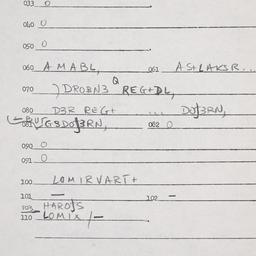 033 0
040 0
050 0
060 AMABL, 061 ASTLAKSR...
Q
070 )DROBN3 REG+DL,
080 D3R REG+ ... DOJ3RN,
081 GBDOJ3RN, 082 0
090 0
091 0
100 LOMIRVART+
101 — 102 —
103 HAROJS
110 LOMIX /—